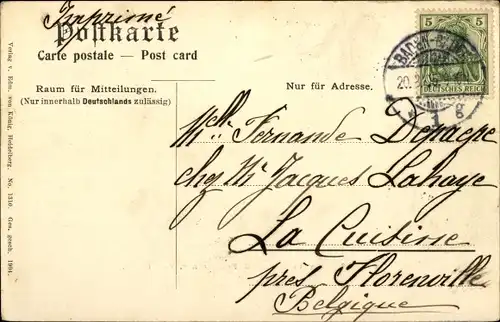 Imprimé
Postkarte
Carte postale — Post card
Raum für Mitteilungen.
(Nur innerhalb Deutschlands zulässig)
Nur für Adresse.
5 5
DEUTSCHES REICH
BADEN
1 g
Mlle Fernande Depaepe
chez Mr Jacques Lahaye
La Cuisine
près Florenville
Belgique
Verlag v. Edm. von König, Heidelberg. No. 1310. Ges. gesch. 1904.